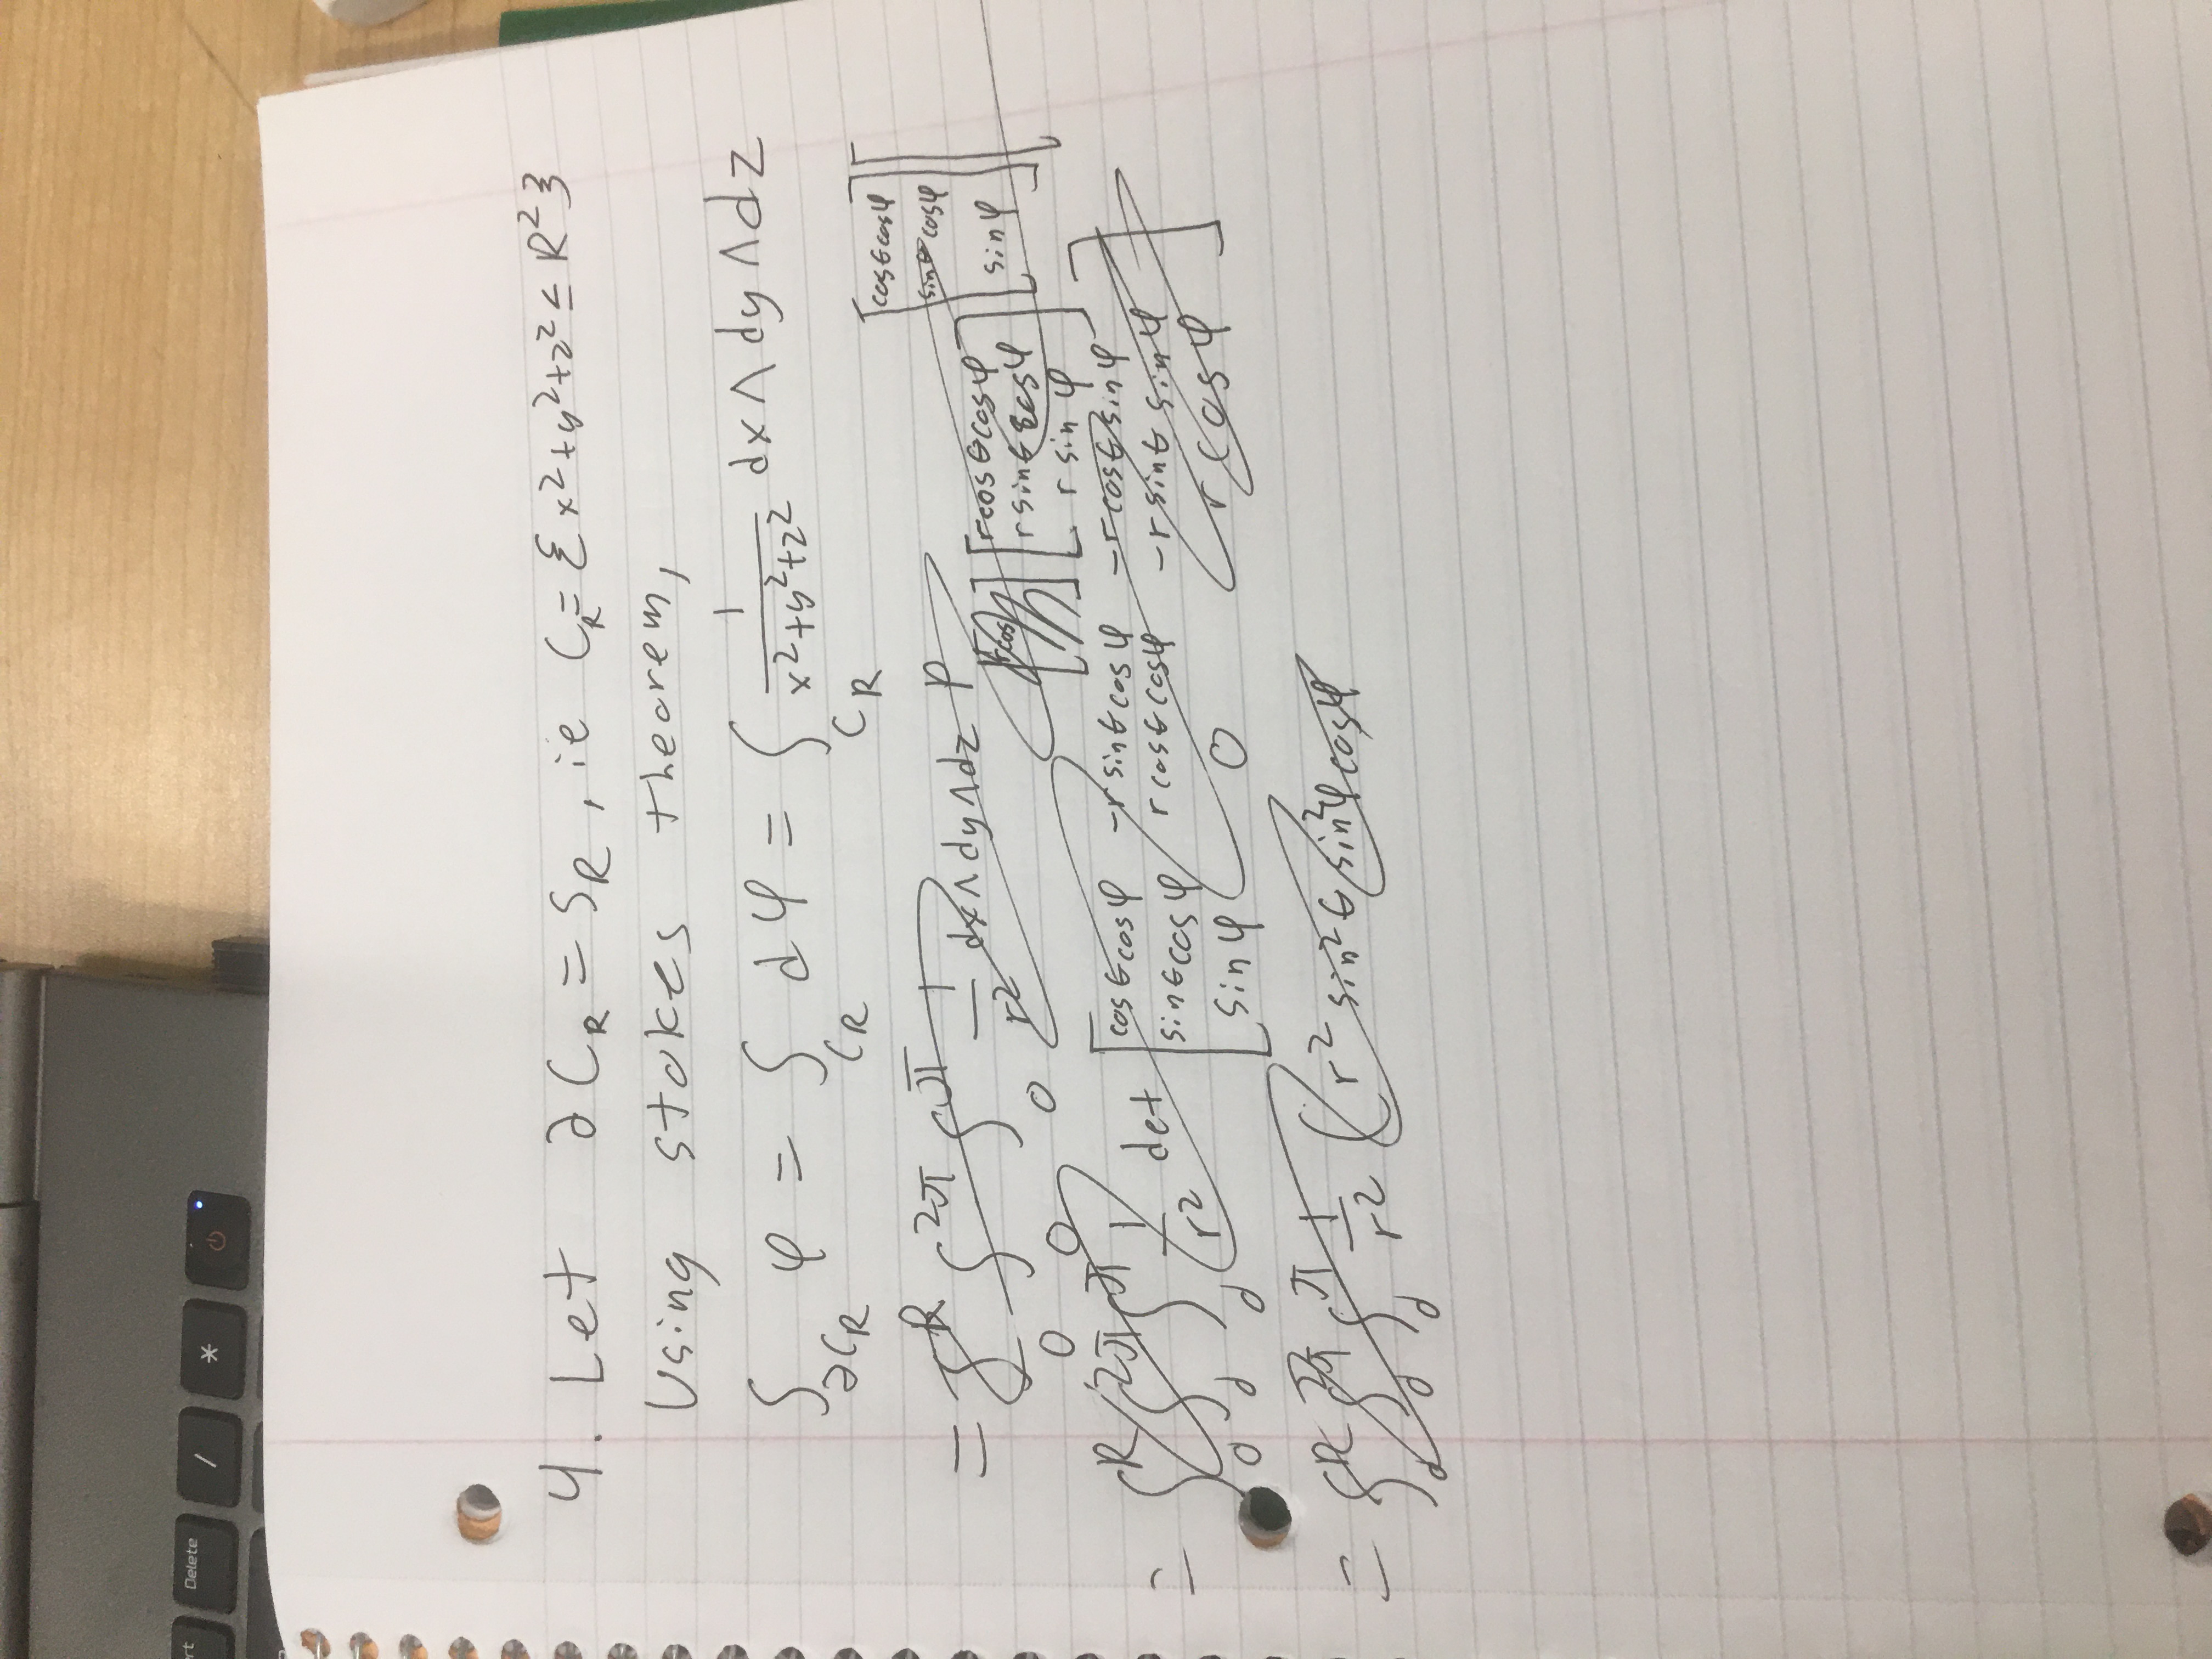 rt Delete / *
4. Let ∂C_R = S_R, ie C_R = {x²+y²+z² ≤ R²}
Using stokes theorem,
∫_{∂C_R} φ = ∫_{C_R} dφ = ∫_{C_R} 1/(x²+y²+z²) dx∧dy∧dz
= ∫_0^R ∫_0^{2π} ∫_0^π 1/r² dx∧dy∧dz P [rcos] [rcosθcosφ rsinθcosφ r sin φ] [cosθcosφ sinθcosφ sinφ] [
= ∫_0^R ∫_0^{2π} ∫_0^π 1/r² det [cosθcosφ -rsinθcosφ -rcosθsinφ
sinθcosφ rcosθcosφ -rsinθ sinφ
sinφ 0 rcosφ]
= ∫_0^R ∫_0^{2π} ∫_0^π 1/r² (r² sin²θ sin²φcosφ